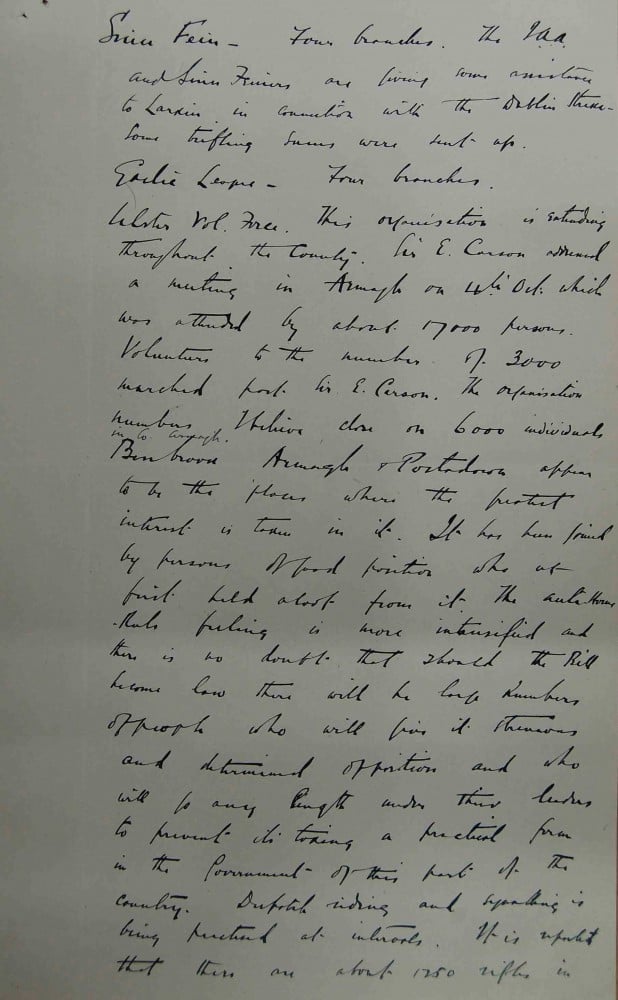 Sinn Fein – Four branches. The G.A.A.
and Sinn Feiners are giving some assistance
to Larkin in connection with the Dublin Strike –
Some trifling sums were sent up.
Gaelic League – Four branches.
Ulster Vol. Force. This organisation is extending
throughout the County. Sir E. Carson addressed
a meeting in Armagh on 4th Oct. which
was attended by about 17000 persons.
Volunteers to the number of 3000
marched past Sir E. Carson. The organisation
numbers I believe close on 6000 individuals
in Co Armagh.
Bessbrook Armagh & Portadown appear
to be the places where the greatest
interest is taken in it. It has been joined
by persons of good position who at
first held aloof from it. The anti-Home
-Rule feeling is more intensified and
there is no doubt that should the Bill
become law there will be large numbers
of people who will give it strenuous
and determined opposition and who
will go any length under their leaders
to prevent its taking a practical form
in the Government of this part of the
country. Despatch riding and signalling is
being practised at intervals. It is reported
that there are about 1250 rifles in